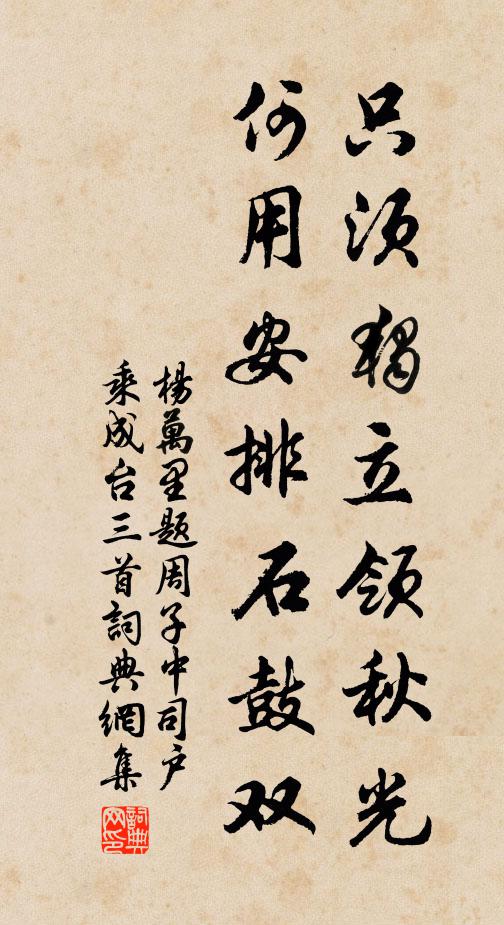 只须独立领秋光
何用安排石鼓双
杨萬里题周子中司户
乘成台三首詞典網集
詞典网印